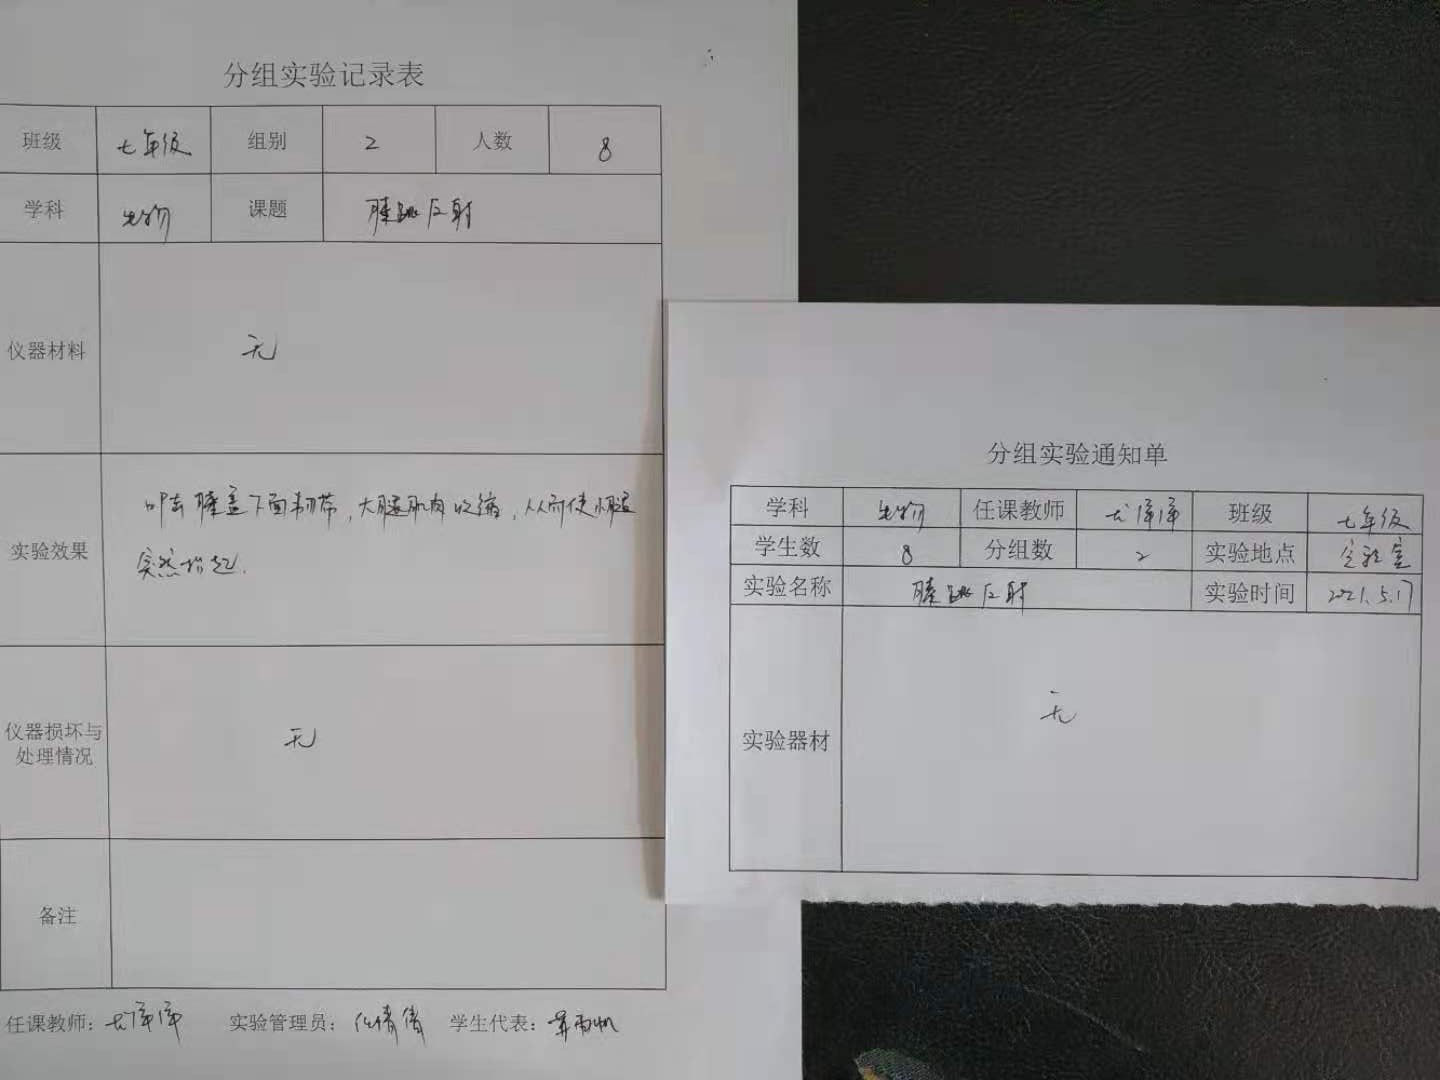 分组实验记录表
班级 七年级 组别 2 人数 8
学科 生物 课题 膝跳反射
仪器材料 无
实验效果 叩击膝盖下面韧带,大腿肌肉收缩,从而使小腿
突然抬起.
仪器损坏与
处理情况 无
备注
任课教师: 实验管理员: 学生代表:
分组实验通知单
学科 生物 任课教师 班级 七年级
学生数 8 分组数 2 实验地点 实验室
实验名称 膝跳反射 实验时间 2021.5.17
实验器材 无